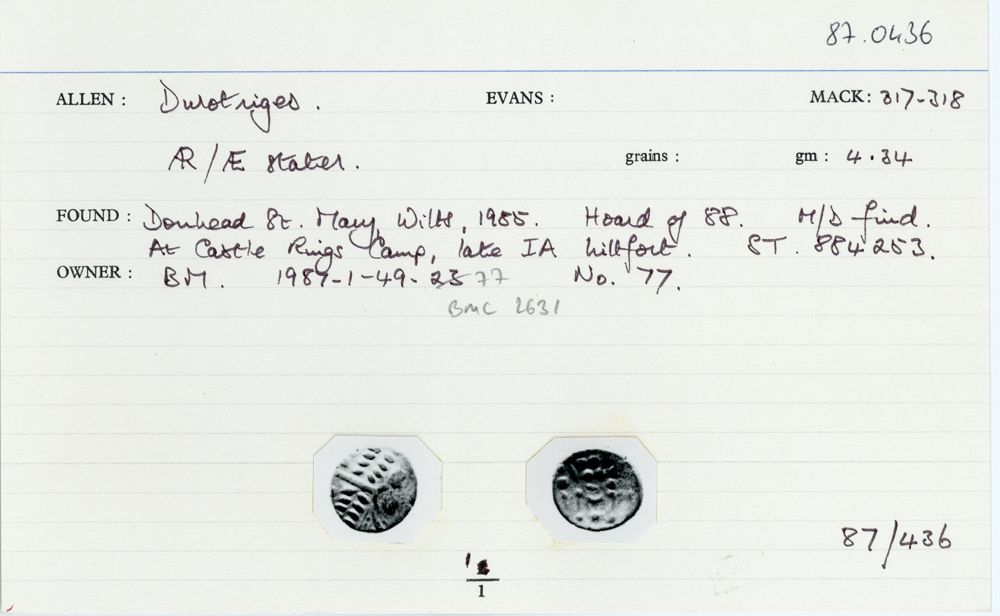 87.0436
ALLEN : Durotriges. EVANS : MACK: 317-318
AR/Æ stater. grains : gm : 4.34
FOUND : Donhead St. Mary, Wilts, 1985. Hoard of 88. M/D find.
At Castle Rings Camp, late IA hillfort. ST. 884 253.
OWNER : BM. 1987-1-49-2377 No. 77.
BMC 2631
87/436
1
1